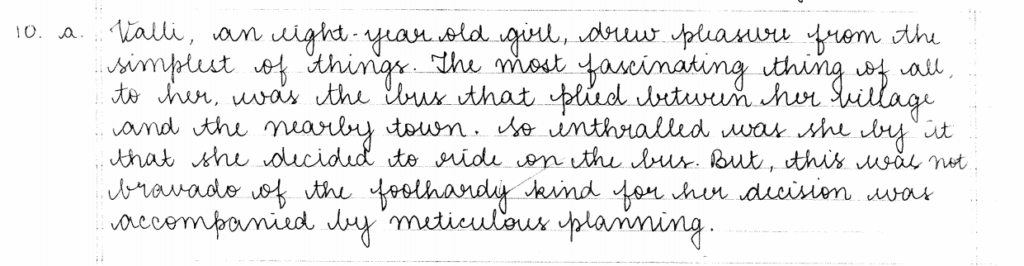 10. a. Valli, an eight-year old girl, drew pleasure from the
simplest of things. The most fascinating thing of all,
to her, was the bus that plied between her village
and the nearby town. So enthralled was she by it
that she decided to ride on the bus. But, this was not
bravado of the foolhardy kind for her decision was
accompanied by meticulous planning.